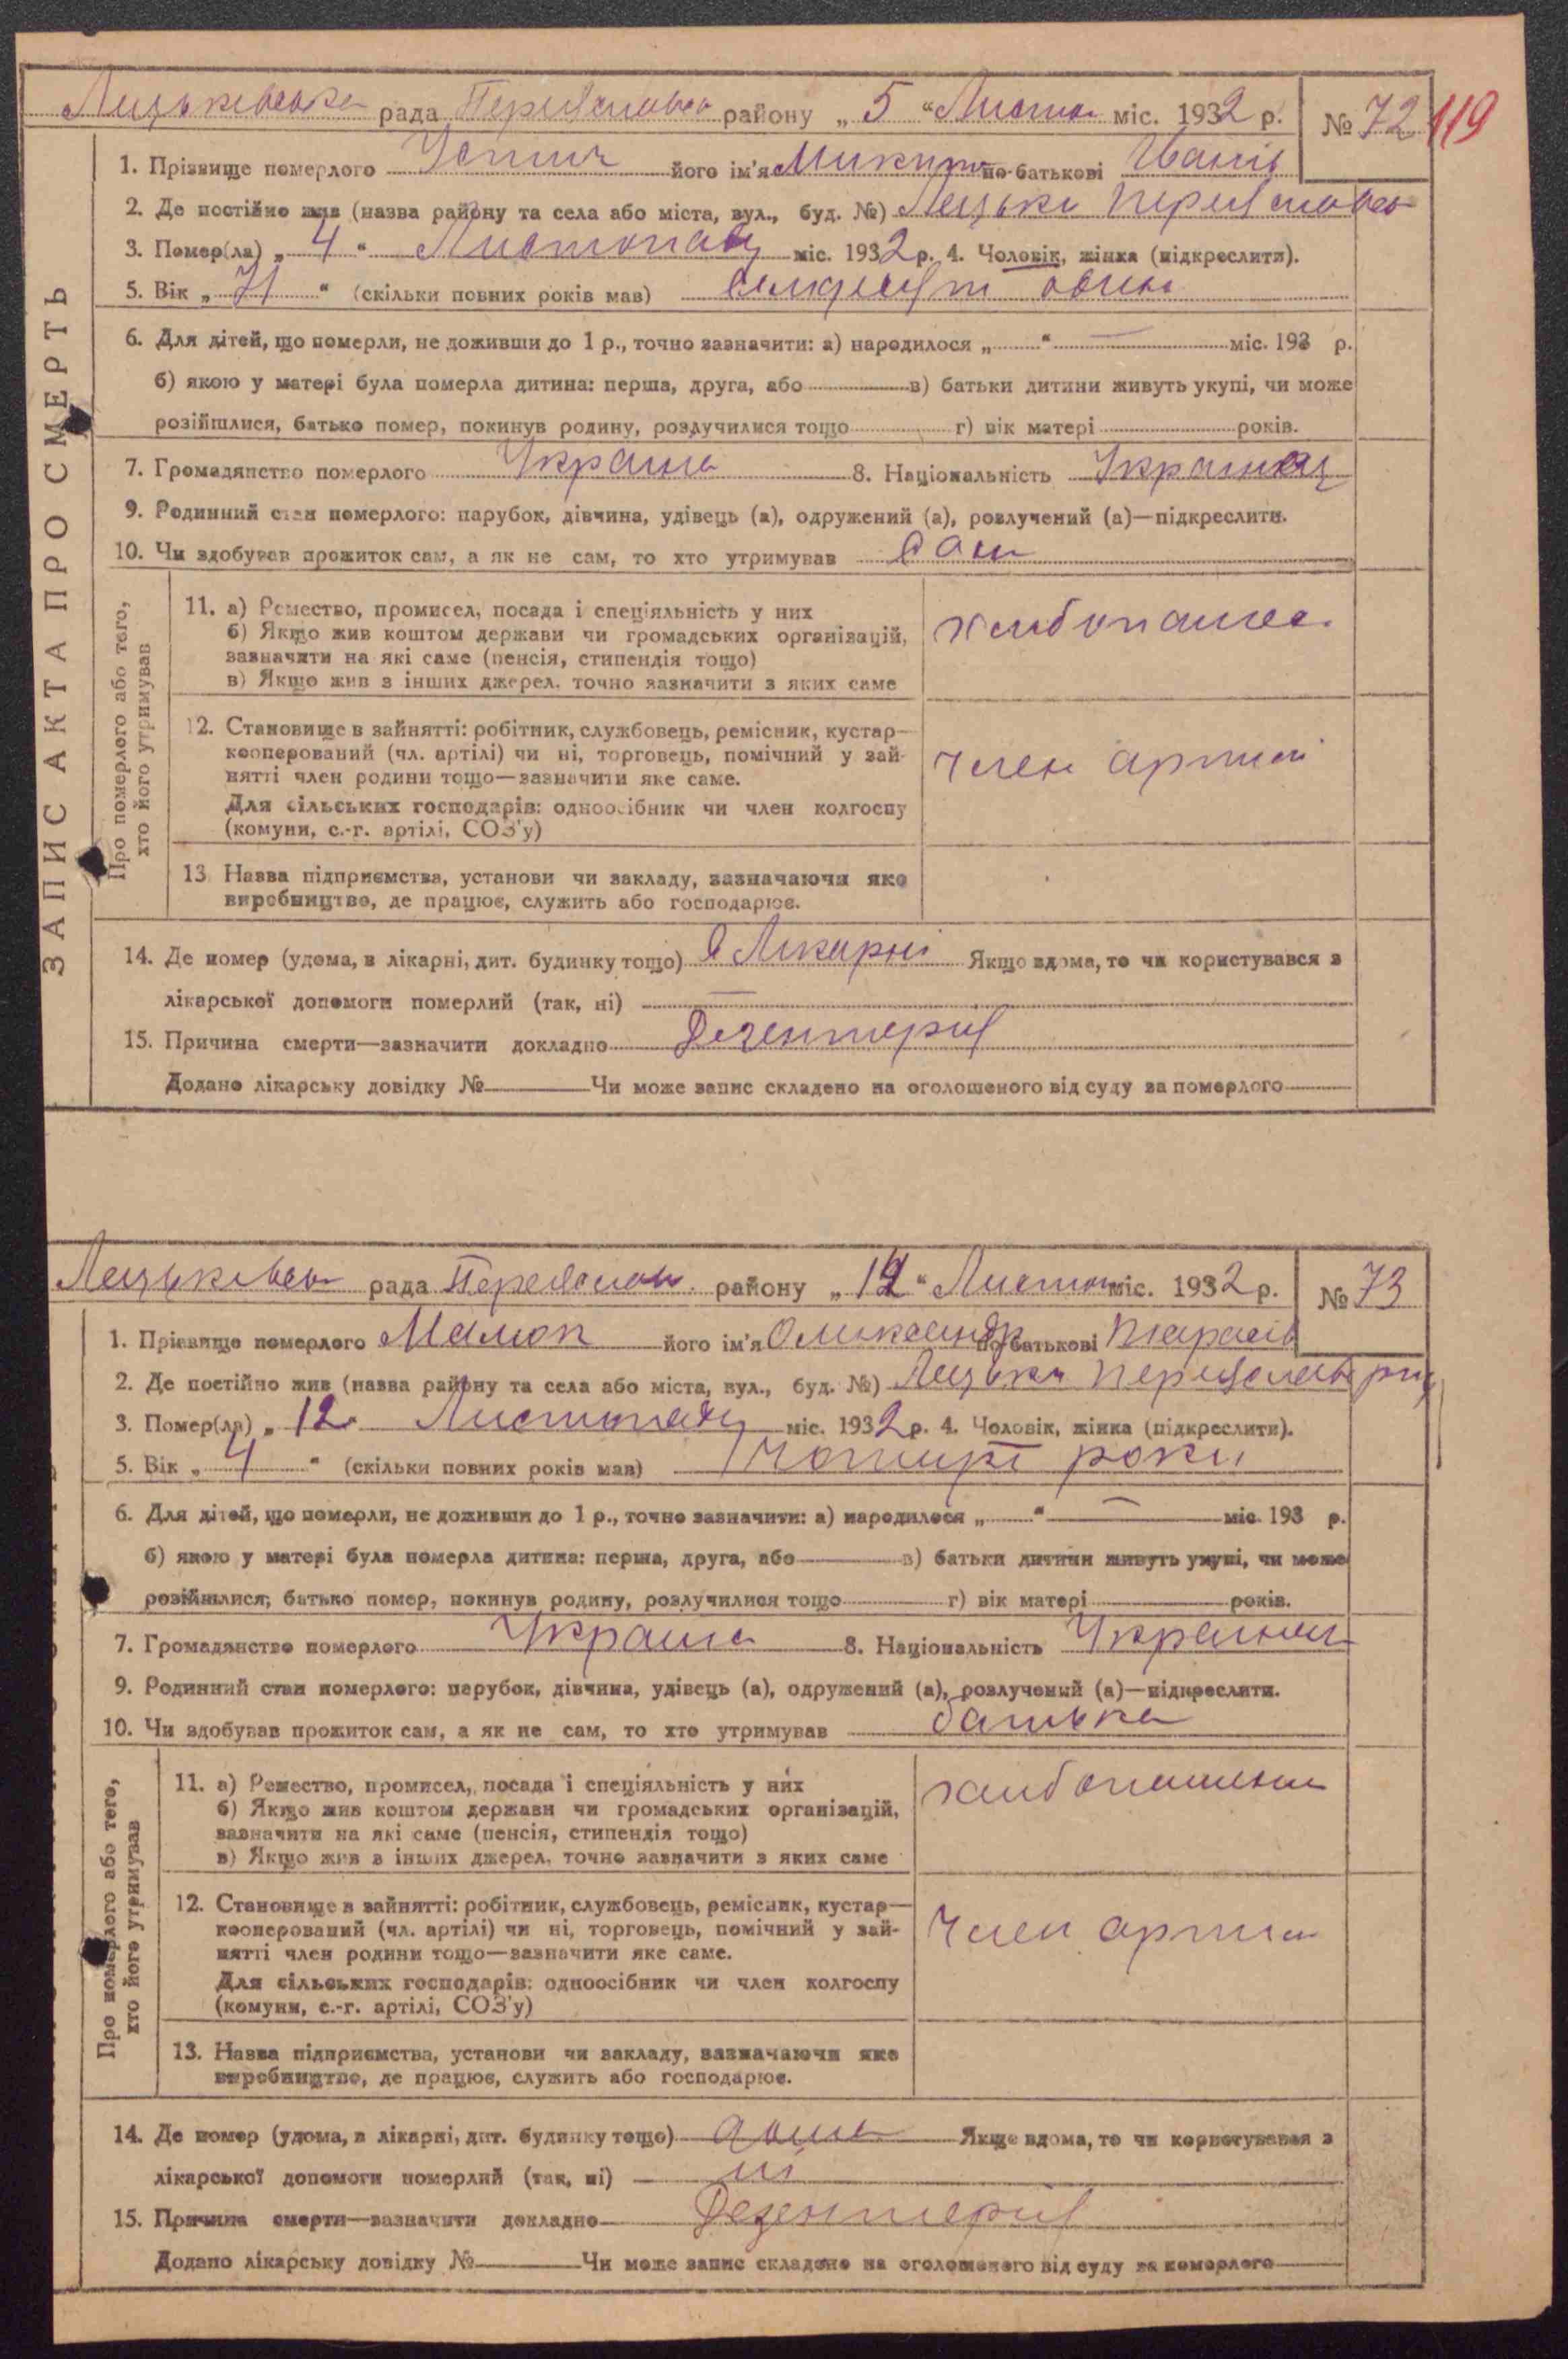 рада району „ 5 “ Листоп міс. 1932 р. № 72 119
ЗАПИС АКТА ПРО СМЕРТЬ
1. Прізвище померлого Устич його ім'я Микита по-батькові Іванів
2. Де постійно жив (назва району та села або міста, вул., буд. №) Лецьки
3. Помер(ла) „ 4 “ Листопаду міс. 1932 р. 4. Чоловік, жінка (підкреслити).
5. Вік „ 71 “ (скільки повних років мав)
6. Для дітей, що померли, не доживши до 1 р., точно зазначити: а) народилося „ “ — міс. 193 р.
б) якою у матері була померла дитина: перша, друга, або в) батьки дитини живуть укупі, чи може
розійшлися, батько помер, покинув родину, розлучилися тощо г) вік матері років.
7. Громадянство померлого Україна 8. Національність
9. Родинний стан померлого: парубок, дівчина, удівець (а), одружений (а), розлучений (а)—підкреслити.
10. Чи здобував прожиток сам, а як не сам, то хто утримував сам
Про померлого або того,
хто його утримував
11. а) Ремество, промисел, посада і спеціяльність у них
б) Якщо жив коштом держави чи громадських організацій,
зазначити на які саме (пенсія, стипендія тощо)
в) Якщо жив з інших джерел, точно зазначити з яких саме
12. Становище в зайнятті: робітник, службовець, ремісник, кустар—
кооперований (чл. артілі) чи ні, торговець, помічний у зай-
нятті член родини тощо—зазначити яке саме.
Для сільських господарів: одноосібник чи член колгоспу
(комуни, с.-г. артілі, СОЗ'у)
член артілі
13. Назва підприємства, установи чи закладу, зазначаючи яке
виробництво, де працює, служить або господарює.
14. Де помер (удома, в лікарні, дит. будинку тощо) в Лікарні Якщо вдома, то чи користувався з
лікарської допомоги померлий (так, ні) —
15. Причина смерти—зазначити докладно Дезентерія
Додано лікарську довідку № Чи може запис складено на оголошеного від суду за померлого
рада району „ 12 “ Листоп міс. 1932 р. № 73
1. Прізвище померлого його ім'я Олександр по-батькові Тарасів
2. Де постійно жив (назва району та села або міста, вул., буд. №) Лецьки
3. Помер(ла) „ 12 Листопаду міс. 1932 р. 4. Чоловік, жінка (підкреслити).
5. Вік „ 4 “ (скільки повних років мав) чотирі роки
6. Для дітей, що померли, не доживши до 1 р., точно зазначити: а) народилося „ “ — міс. 193 р.
б) якою у матері була померла дитина: перша, друга, або в) батьки дитини живуть укупі, чи може
розійшлися, батько помер, покинув родину, розлучилися тощо г) вік матері років.
7. Громадянство померлого Україна 8. Національність
9. Родинний стан померлого: парубок, дівчина, удівець (а), одружений (а), розлучений (а)—підкреслити.
10. Чи здобував прожиток сам, а як не сам, то хто утримував батько
Про померлого або того,
хто його утримував
11. а) Ремество, промисел, посада і спеціяльність у них
б) Якщо жив коштом держави чи громадських організацій,
зазначити на які саме (пенсія, стипендія тощо)
в) Якщо жив з інших джерел, точно зазначити з яких саме
12. Становище в зайнятті: робітник, службовець, ремісник, кустар—
кооперований (чл. артілі) чи ні, торговець, помічний у зай-
нятті член родини тощо—зазначити яке саме.
Для сільських господарів: одноосібник чи член колгоспу
(комуни, с.-г. артілі, СОЗ'у)
член артілі
13. Назва підприємства, установи чи закладу, зазначаючи яке
виробництво, де працює, служить або господарює.
14. Де помер (удома, в лікарні, дит. будинку тощо) дома Якщо вдома, то чи користувався з
лікарської допомоги померлий (так, ні) ні
15. Причина смерти—зазначити докладно Дезентерія
Додано лікарську довідку № Чи може запис складено на оголошеного від суду за померлого